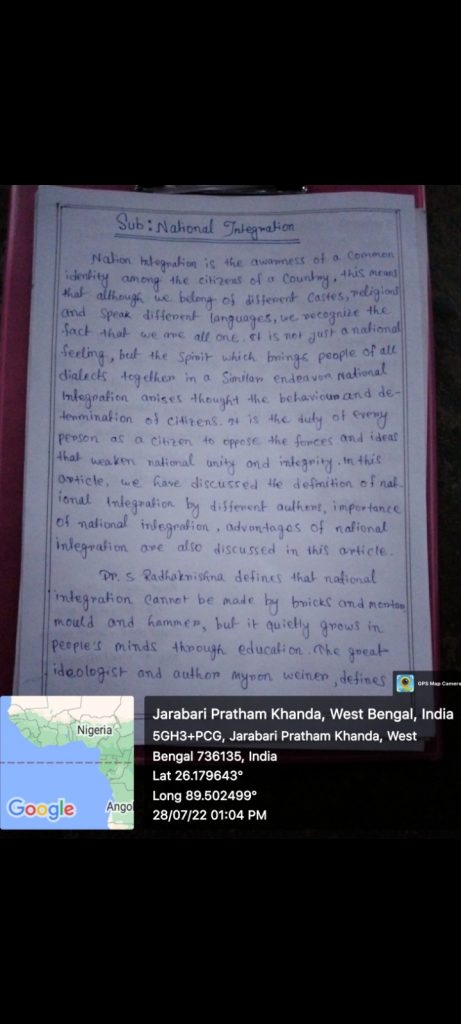 Sub: National Integration
Nation Integration is the awarness of a common
identity among the citizens of a Country, this means
that although we belong of different Castes, religions
and speak different languages, we recognize the
fact that we are all one. It is not just a national
feeling, but the spirit which brings people of all
dialects together in a Similar endeavor National
Integration arises thought the behaviour and de-
termination of citizens. It is the duty of every
person as a citizen to oppose the forces and ideas
that weaken national unity and integrity. In this
article, we have discussed the definition of nat-
ional Integration by different authors, importance
of national integration, advantages of national
integration are also discussed in this article.
Dr. S Radhakrishna defines that national
integration cannot be made by bricks and mortar
mould and hammer, but it quietly grows in
people's minds through education. The great
ideologist and author myron weiner, defines
GPS Map Camera
Jarabari Pratham Khanda, West Bengal, India
5GH3+PCG, Jarabari Pratham Khanda, West
Bengal 736135, India
Lat 26.179643°
Long 89.502499°
28/07/22 01:04 PM
Nigeria
Google
Angol